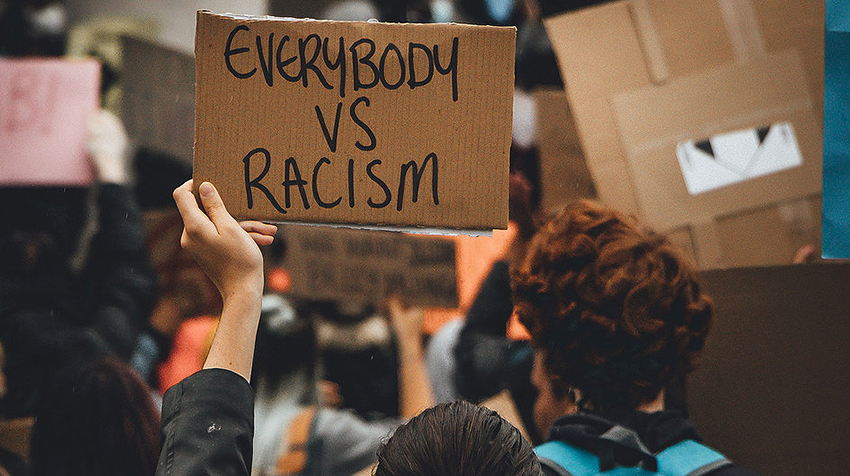 EVERYBODY
VS
RACISM